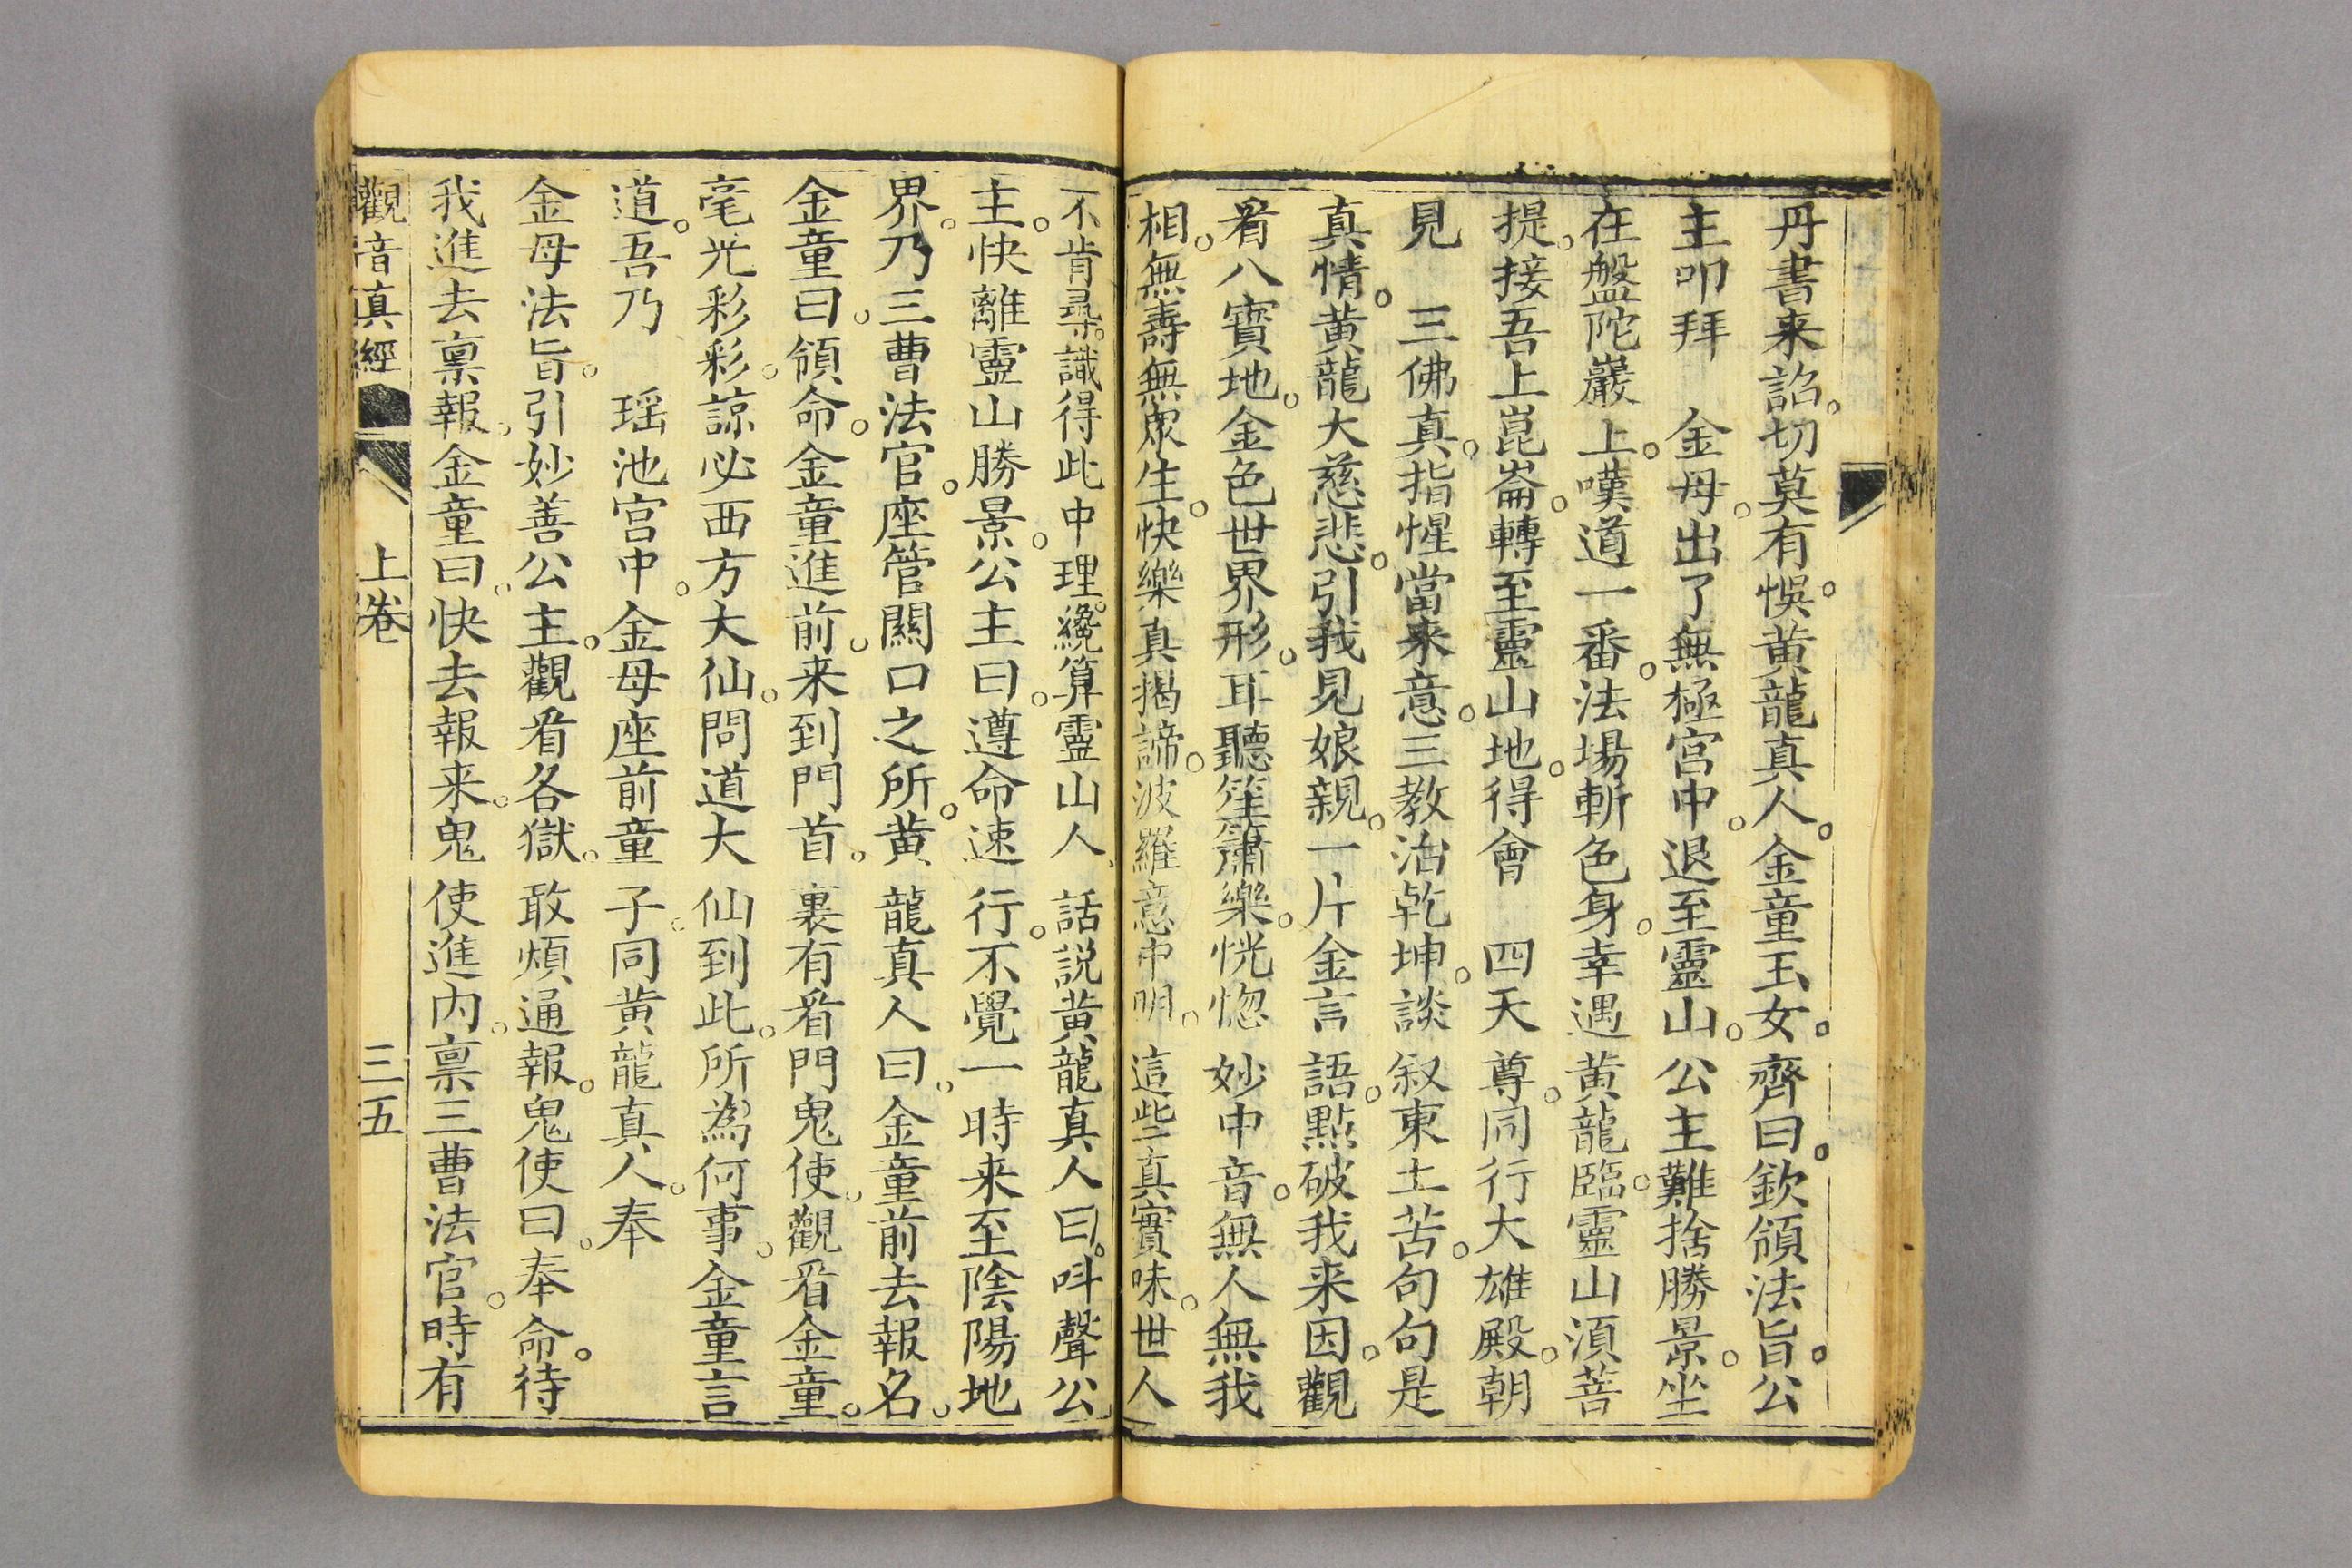 丹書来詔。切莫有悞。黃龍真人。金童玉女。齊曰。欽領法旨。公
主叩拜　金母。出了無極宮中。退至靈山。公主難捨勝景。坐
在盤陀巖上。嘆道一番。法場斬色身。幸遇黃龍臨。靈山須菩
提。接吾上崑崙。轉至靈山地。得會　四天尊。同行大雄殿。朝
見　三佛真。指惺當來意。三教治乾坤。談叙東土苦。句句是
真情。黃龍大慈悲。引我見娘親。一片金言語。點破我来因。觀
看八寶地。金色世界形。耳聽笙簫樂。恍惚妙中音。無人無我
相。無壽無衆生。快樂真揭諦。波羅意中明。這些真實味。世人
不肯尋。識得此中理。纔算靈山人。話説黃龍真人曰。呌聲公
主。快離靈山勝景。公主曰。遵命速行。不覺一時来至陰陽地
界。乃三曹法官。座管關口之所。黃龍真人曰。金童前去報名。
金童曰。領命。金童進前。来到門首。裏有看門鬼使。觀看金童。
毫光彩彩。諒必西方大仙。問道大仙到此。所為何事。金童言
道。吾乃　瑶池宮中。金母座前童子。同黃龍真人。奉
金母法旨。引妙善公主。觀看各獄。敢煩通報。鬼使曰。奉命。待
我進去禀報。金童曰。快去報来。鬼使進內。禀三曹法官。時有
觀音真經　上卷　三五